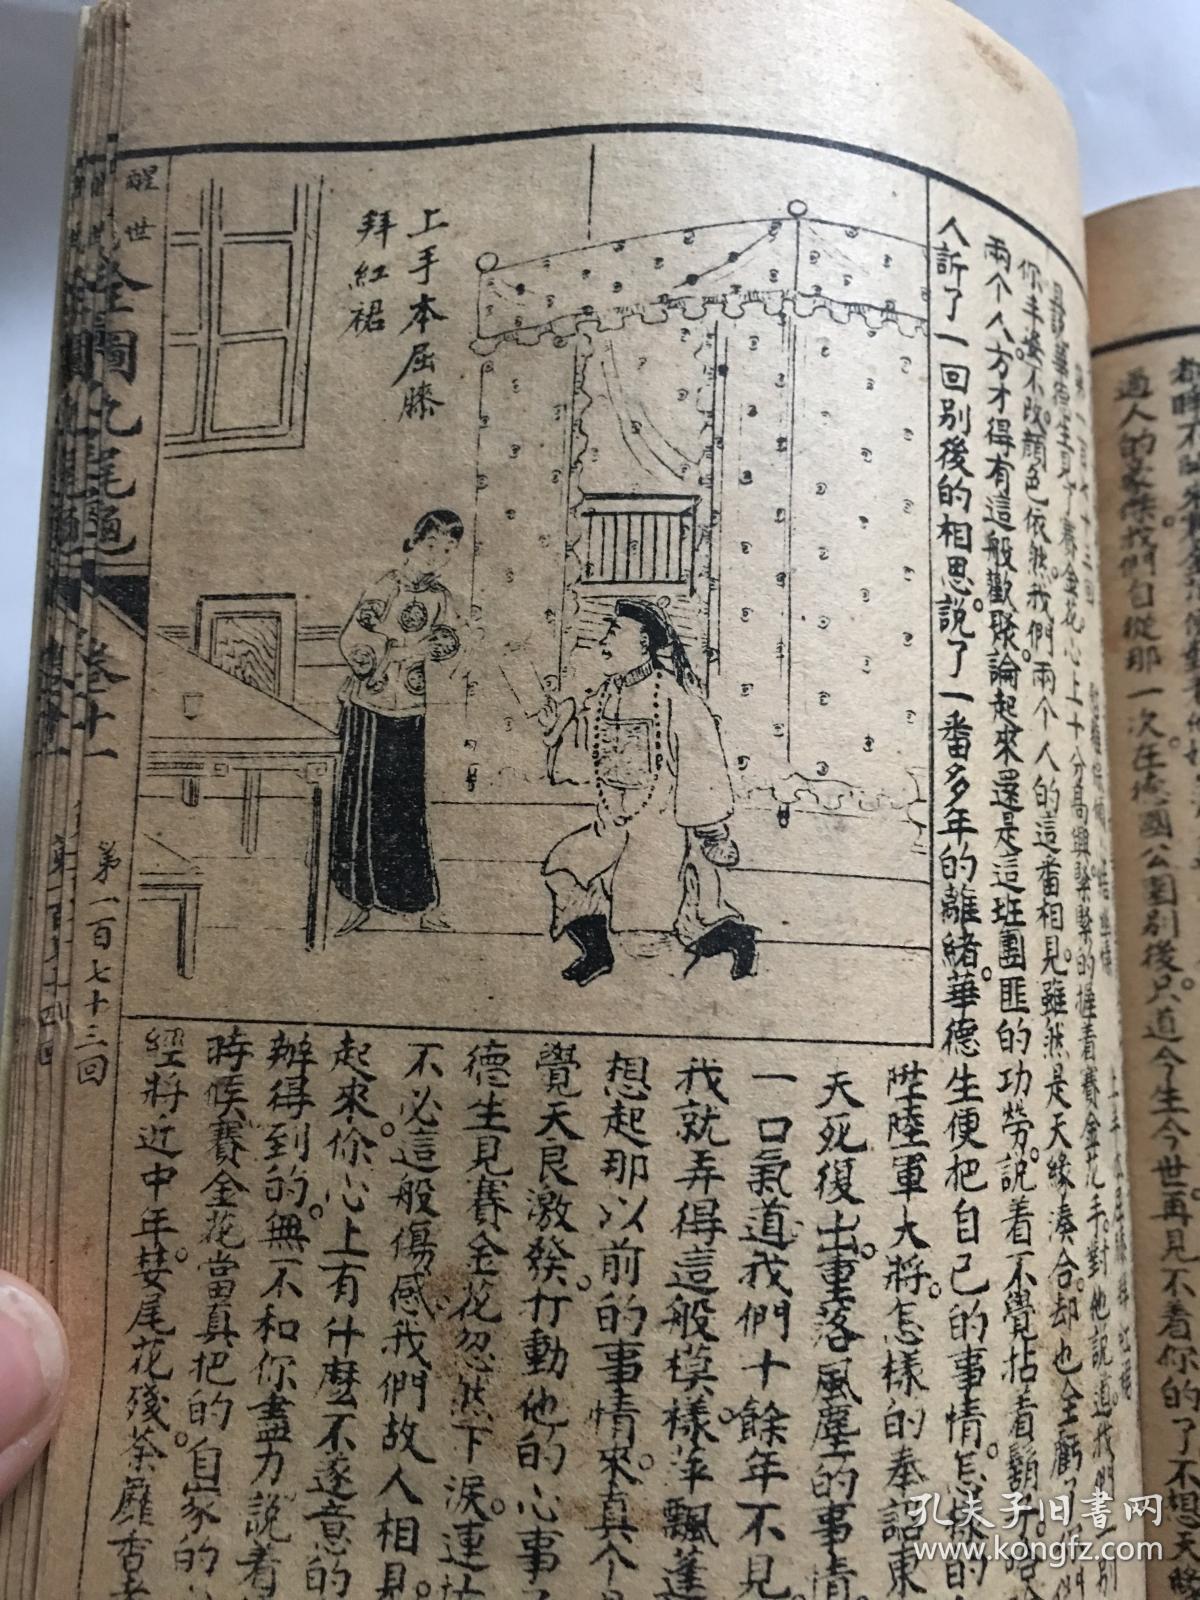 過人的豪傑我們自從那一次在德國公園別後只道今生今世再見不着你的了不想天
第一百七十三回
你丰姿不改顏色依然我們兩个人的這番相見雖然是天緣湊合却也全虧了
兩个人方才得有這般歡聚論起來還是這班團匪的功勞說着不覺拈着鬍子
人訴了一回別後的相思說了一番多年的離緒華德生便把自己的事情怎樣的
陞陸軍大將怎樣的奉詔東
天死復出重落風塵的事情
一口氣道我們十餘年不見
我就弄得這般模樣萍飄蓬
想起那以前的事情來真个
覺天良激發打動他的心事
德生見賽金花忽然下淚連
不必這般傷感我們故人相見
起來你心上有什麼不遂意的
辦得到的無不和你盡力說着
時候賽金花當真把的自家的
經將近中年婪尾花殘荼蘼香
上手本屈膝
拜紅裙
醒世
全圖九尾龜
卷十一
第一百七十三回
孔夫子旧書网
www.kongfz.com